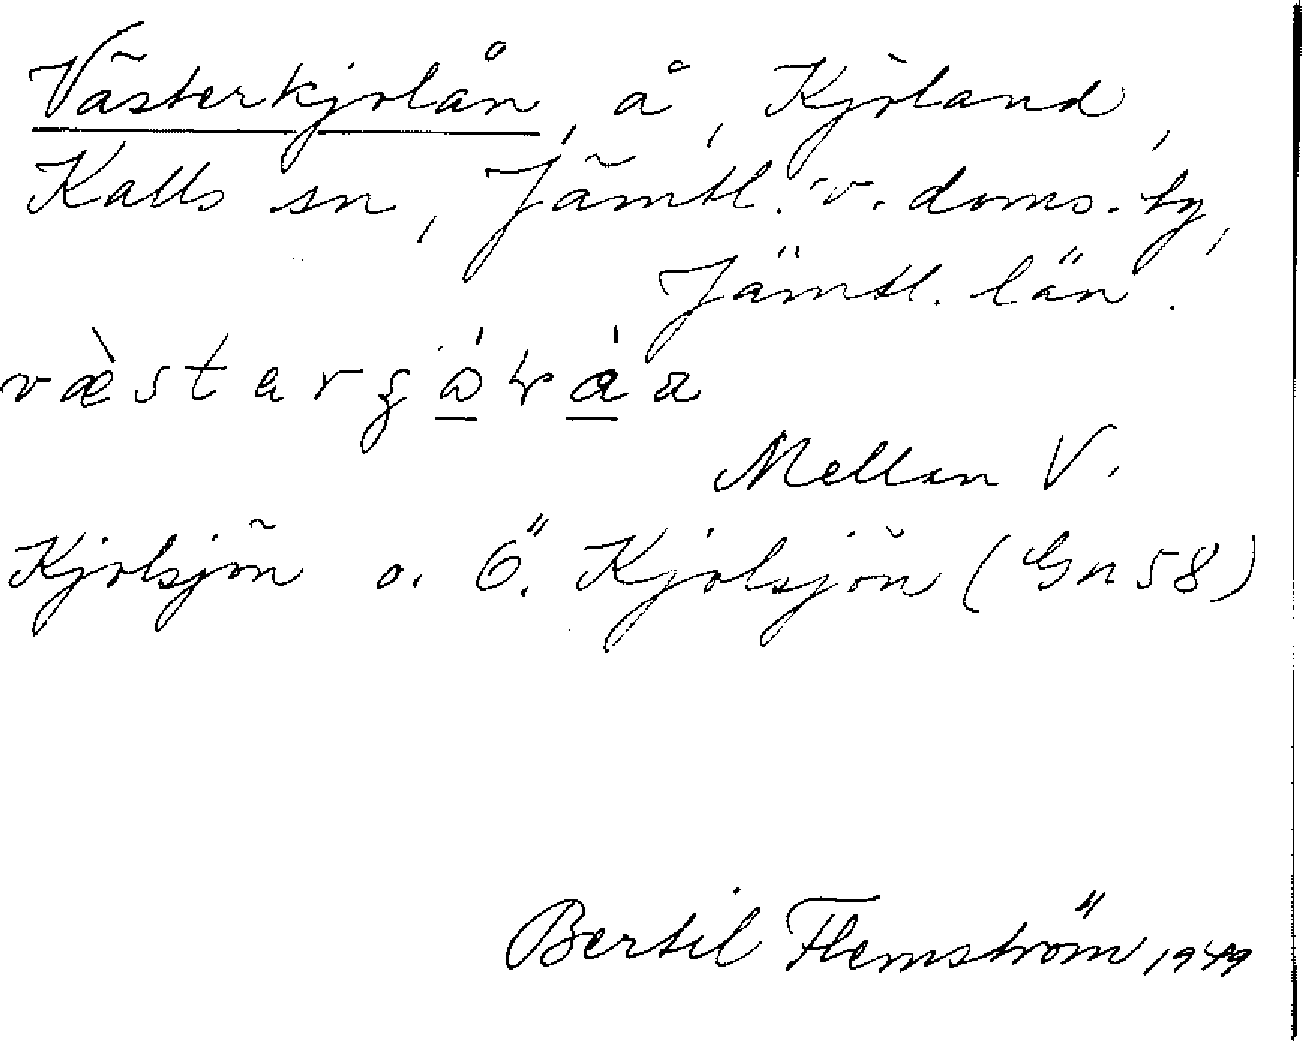 Västerkjolån, å, Kjoland,
Kalls sn, Jämtl. v. doms. tg,
Jämtl. län.
Mellan V.
Kjolsjön o. Ö. Kjolsjön (Gn 58)
Bertil Flemström, 1949